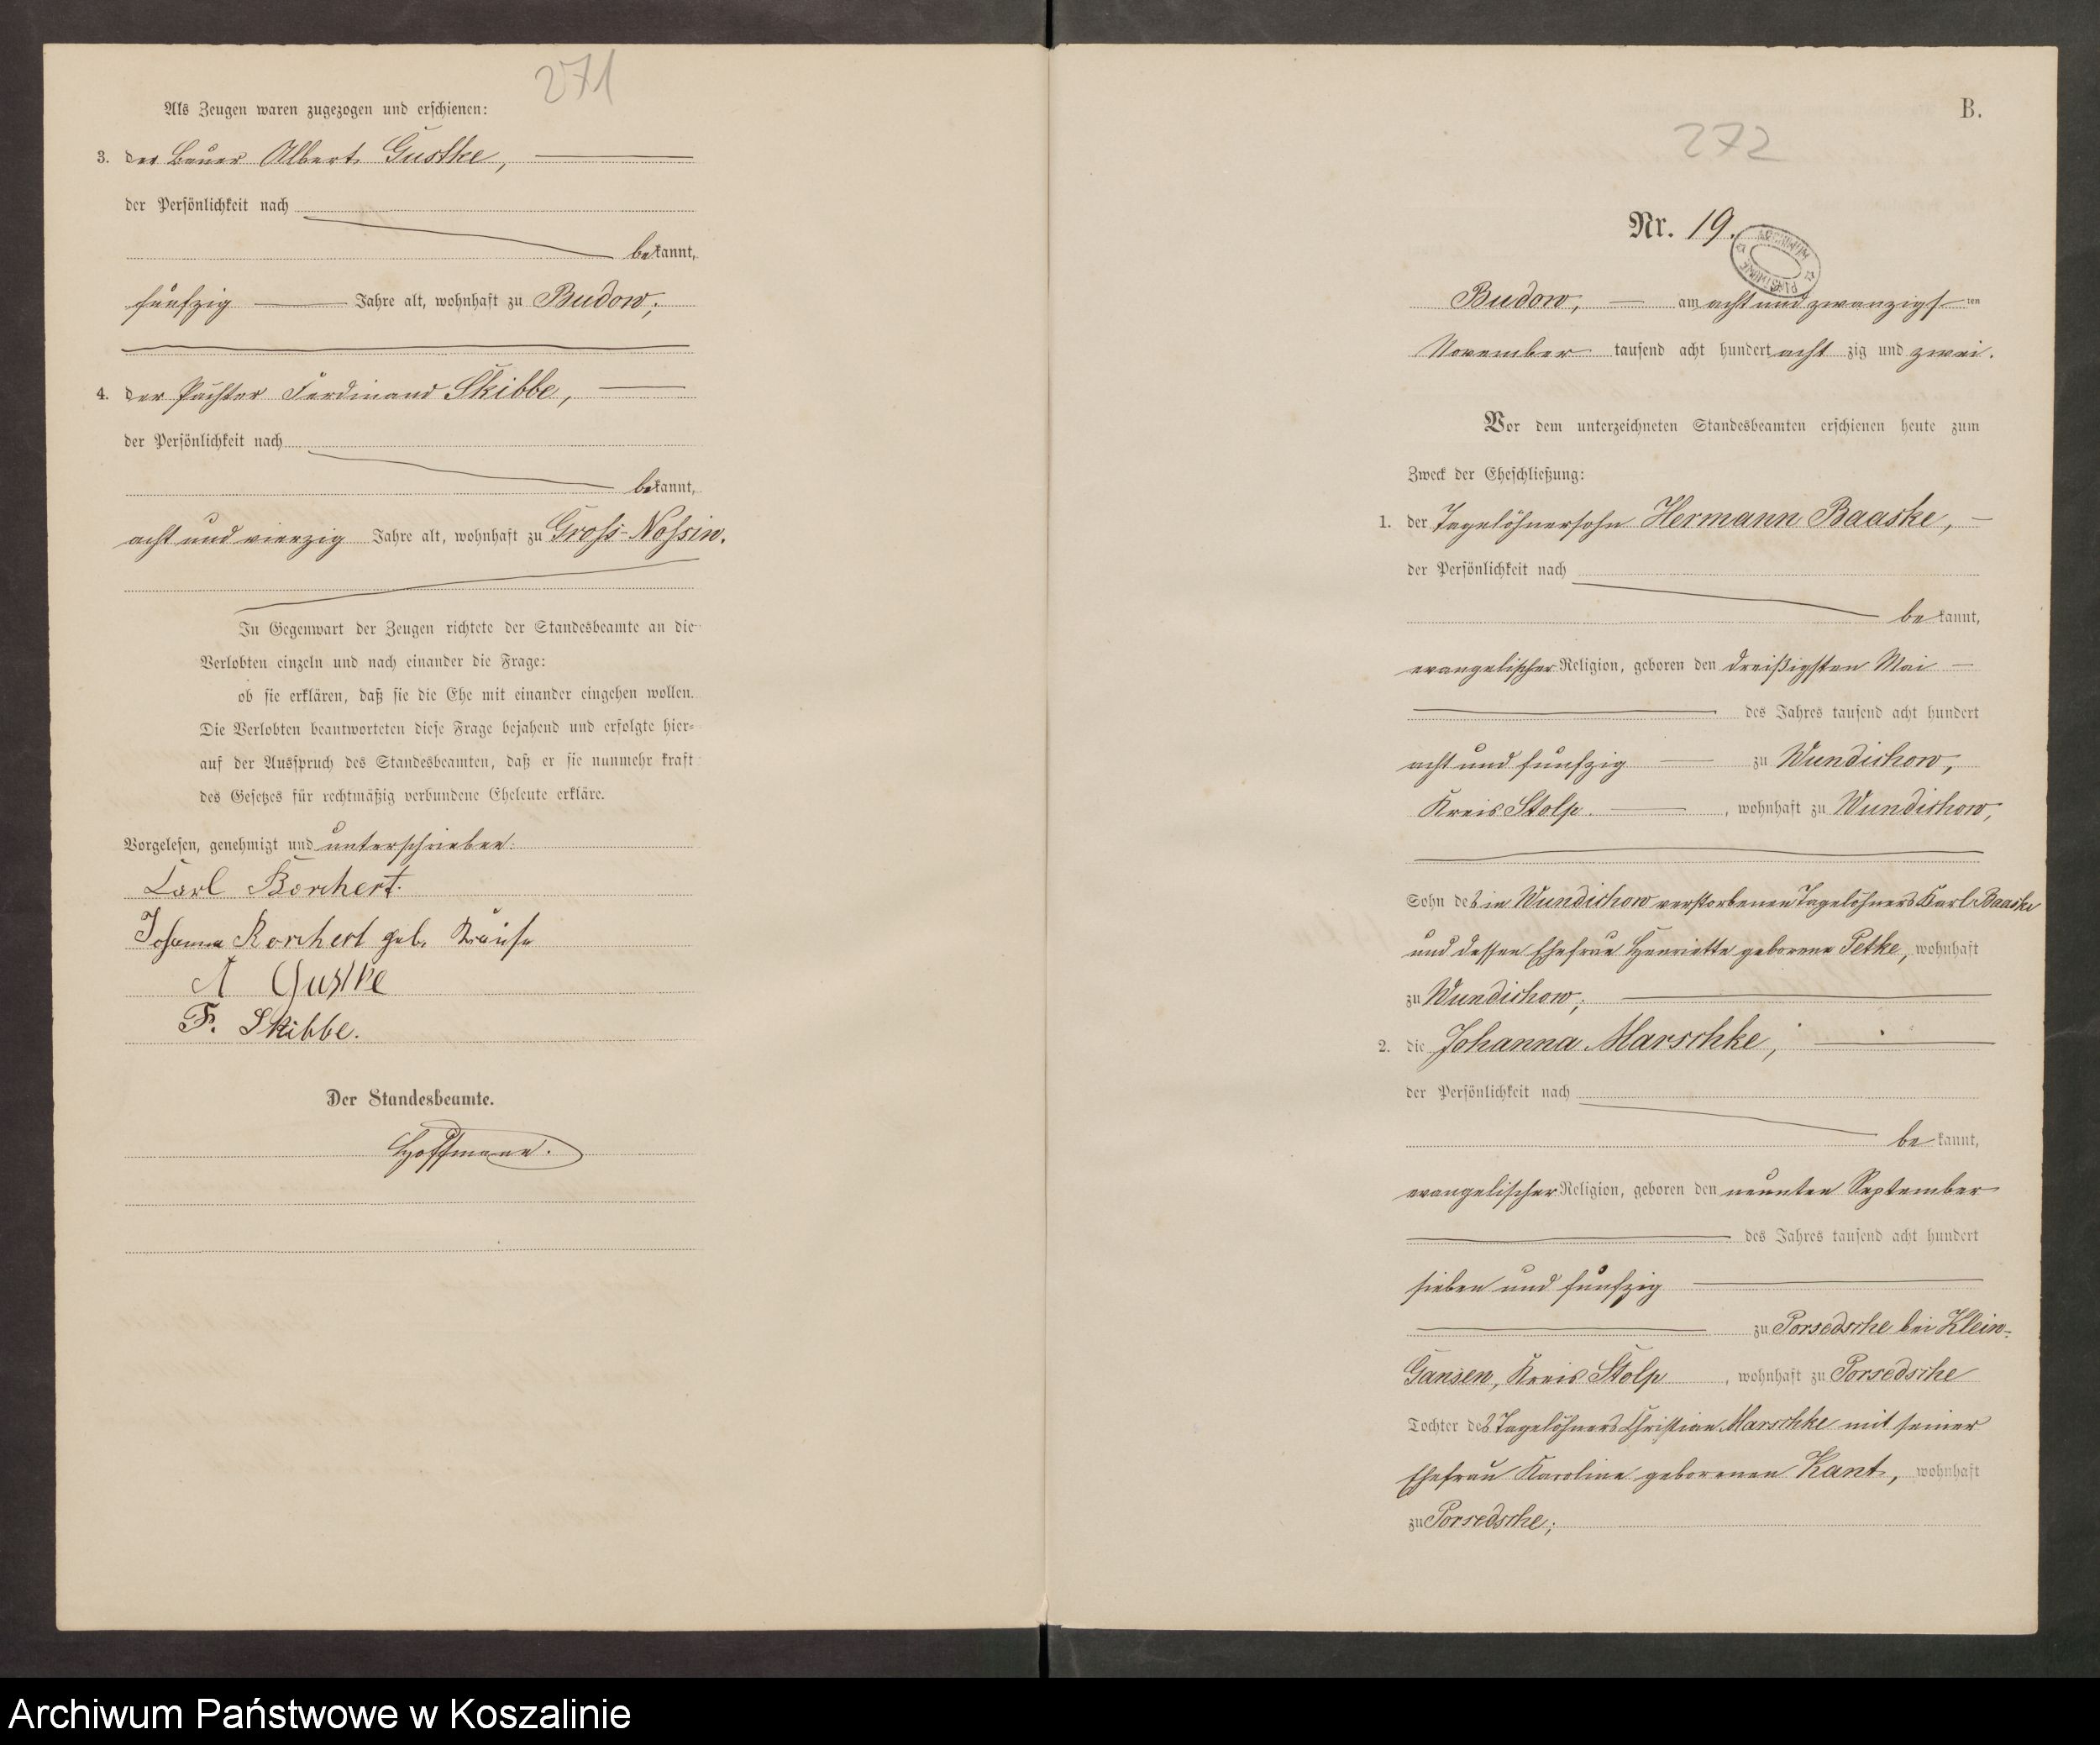 271
Als Zeugen waren zugezogen und erschienen:
3. der Bauer Albert Gustke,
der Persönlichkeit nach
bekannt,
fünfzig Jahre alt, wohnhaft zu Budow;
4. der Pächter Ferdinand Skibbe,
der Persönlichkeit nach
bekannt,
acht und vierzig Jahre alt, wohnhaft zu Gross-Nossin.
In Gegenwart der Zeugen richtete der Standesbeamte an die
Verlobten einzeln und nach einander die Frage:
ob sie erklären, daß sie die Ehe mit einander eingehen wollen.
Die Verlobten beantworteten diese Frage bejahend und erfolgte hier-
auf der Ausspruch des Standesbeamten, daß er sie nunmehr kraft
des Gesetzes für rechtmäßig verbundene Eheleute erkläre.
Vorgelesen, genehmigt und unterschrieben:
Carl Borchert.
Johanna Borchert geb. Krause
A Gustke
F. Skibbe.
Der Standesbeamte.
Hoffmann.
B.
272
Nr. 19.
Budow, am acht und zwanzigsten
November tausend acht hundert acht zig und zwei.
Vor dem unterzeichneten Standesbeamten erschienen heute zum
Zweck der Eheschließung:
1. der Tagelöhnersohn Hermann Baaske,
der Persönlichkeit nach
bekannt,
evangelischer Religion, geboren den dreißigsten Mai
des Jahres tausend acht hundert
acht und fünfzig zu Wundichow,
Kreis Stolp, wohnhaft zu Wundichow,
Sohn des in Wundichow verstorbenen Tagelöhners Karl Baaske
und dessen Ehefrau Henriette geborene Petke, wohnhaft
zu Wundichow;
2. die Johanna Marschke,
der Persönlichkeit nach
bekannt,
evangelischer Religion, geboren den neunten September
des Jahres tausend acht hundert
sieben und fünfzig
zu Porsedsche bei Klein-
Gansen, Kreis Stolp, wohnhaft zu Porsedsche
Tochter des Tagelöhners Christian Marschke mit seiner
Ehefrau Karoline geborenen Kant, wohnhaft
zu Porsedsche;
Archiwum Państwowe w Koszalinie